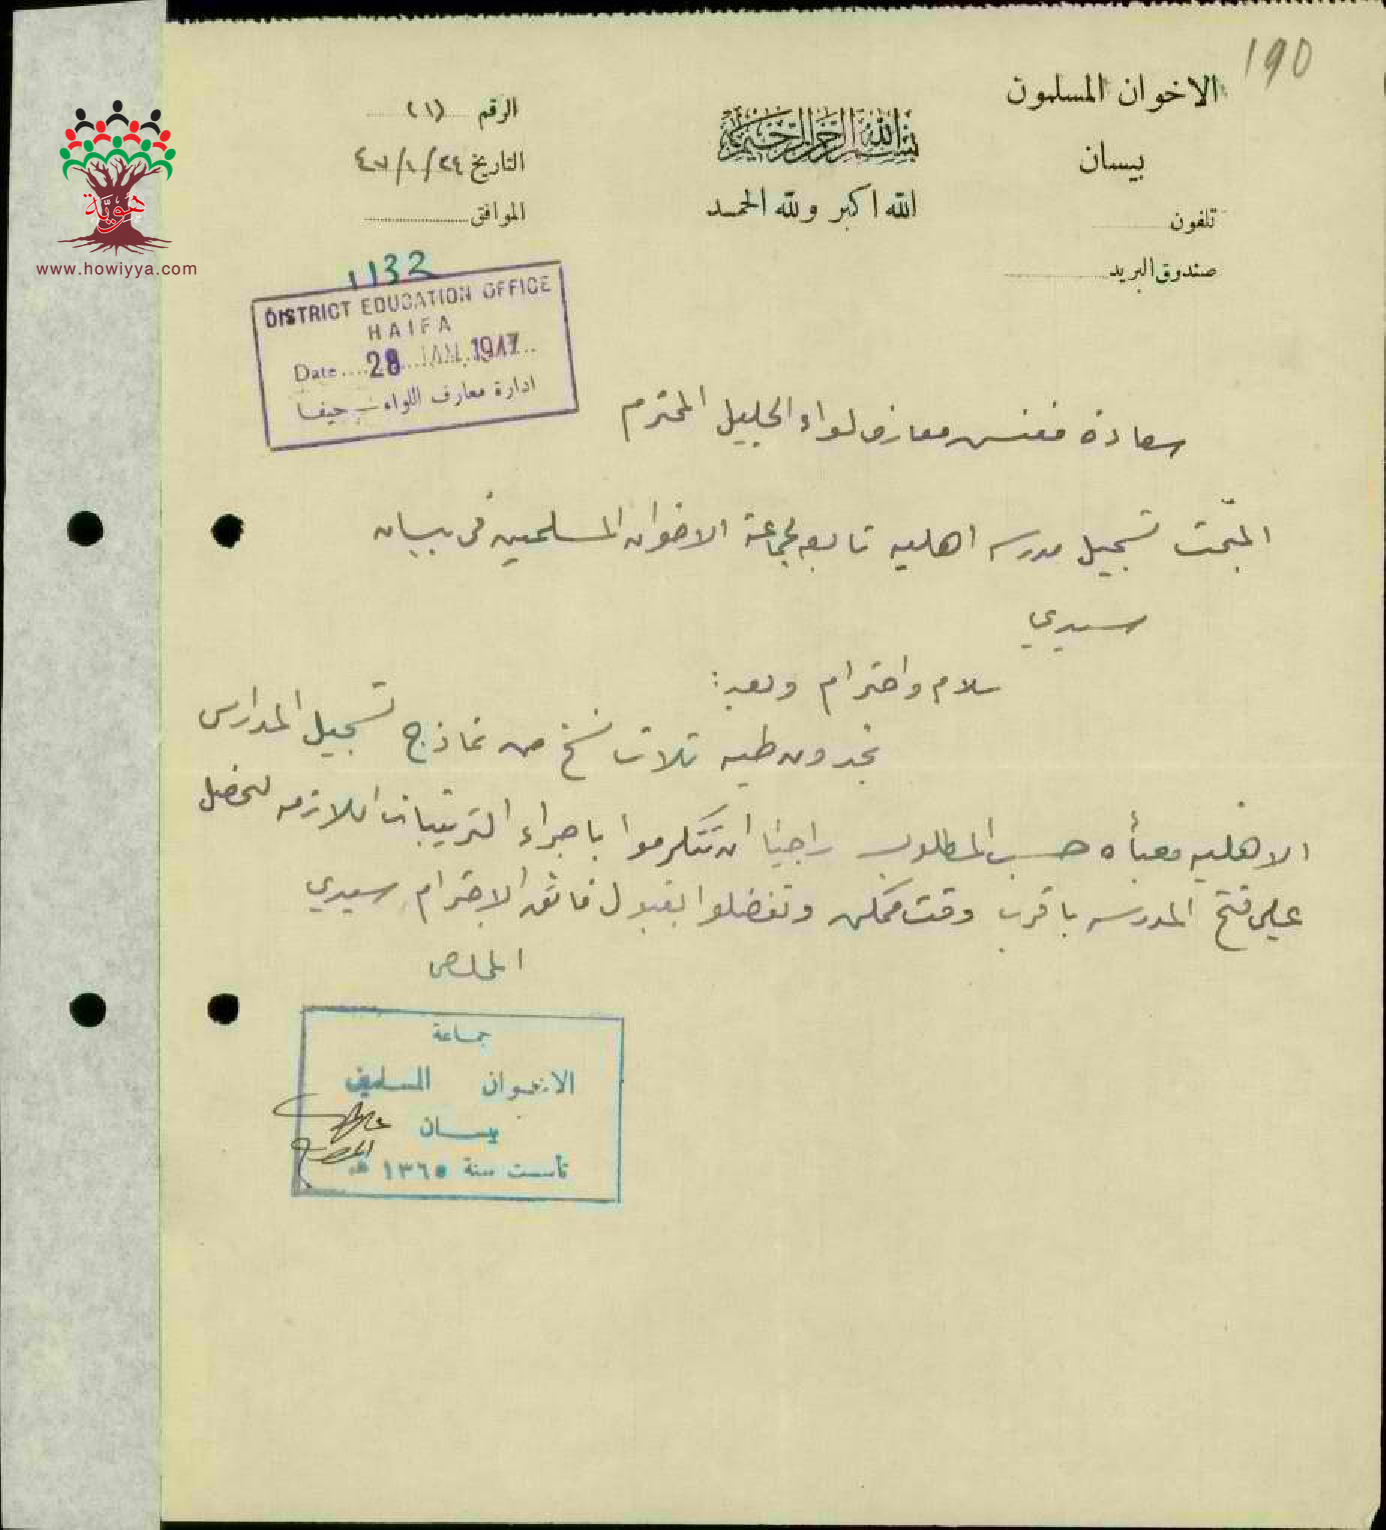 190
الاخوان المسلمون
بيسان
تلفون
صندوق البريد
بسم الله الرحمن الرحيم
الله اكبر ولله الحمد
الرقم (١)
التاريخ ٢٤/١/٤٧
الموافق
هوية
www.howiyya.com
1132
DISTRICT EDUCATION OFFICE
HAIFA
Date 28 JAN 1947
ادارة معارف اللواء - حيفا
سعادة مفتش معارف لواء الجليل المحترم
المبحث تسجيل مدرسه اهليه تابعه لجماعة الاخوان المسلمين في بيسان
سيدي
سلام واحترام وبعد:
تجدون طيه ثلاث نسخ من نماذج تسجيل المدارس
الاهليه معبأه حسب المطلوب راجيا ان تتكرموا باجراء الترتيبات اللازمه لنحصل
على فتح المدرسه باقرب وقت ممكن وتفضلوا بقبول فائق الاحترام سيدي
المخلص
جماعة
الاخوان المسلمين
بيسان
تأسست سنة ١٣٦٥ هـ